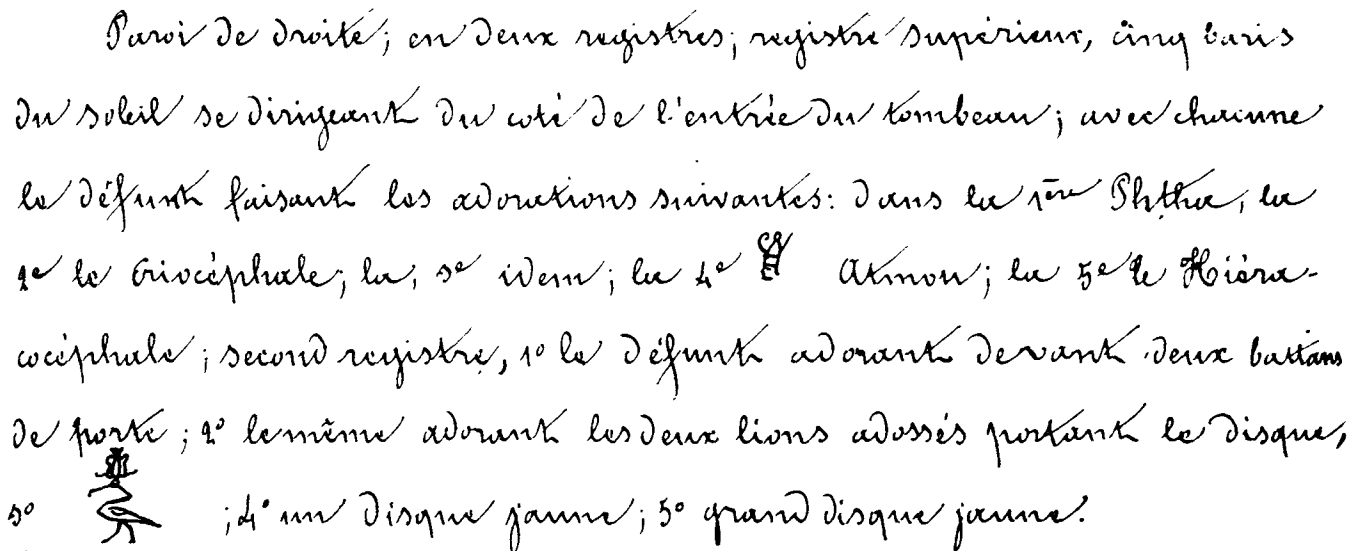 Paroi de droite; en deux registres; registre supérieur, cinq baris
du soleil se dirigeant du coté de l'entrée du tombeau; avec chacune
le défunt faisant les adorations suivantes: dans la 1ère Phtha, la
2e le Criocéphale; la, 3e idem; la 4e Atmou; la 5e le Hiéra-
cocéphale; second registre, 1º le défunt adorant devant deux battans
de porte; 2º le même adorant les deux lions adossés portant le disque,
3º ; 4º un disque jaune; 5º grand disque jaune.